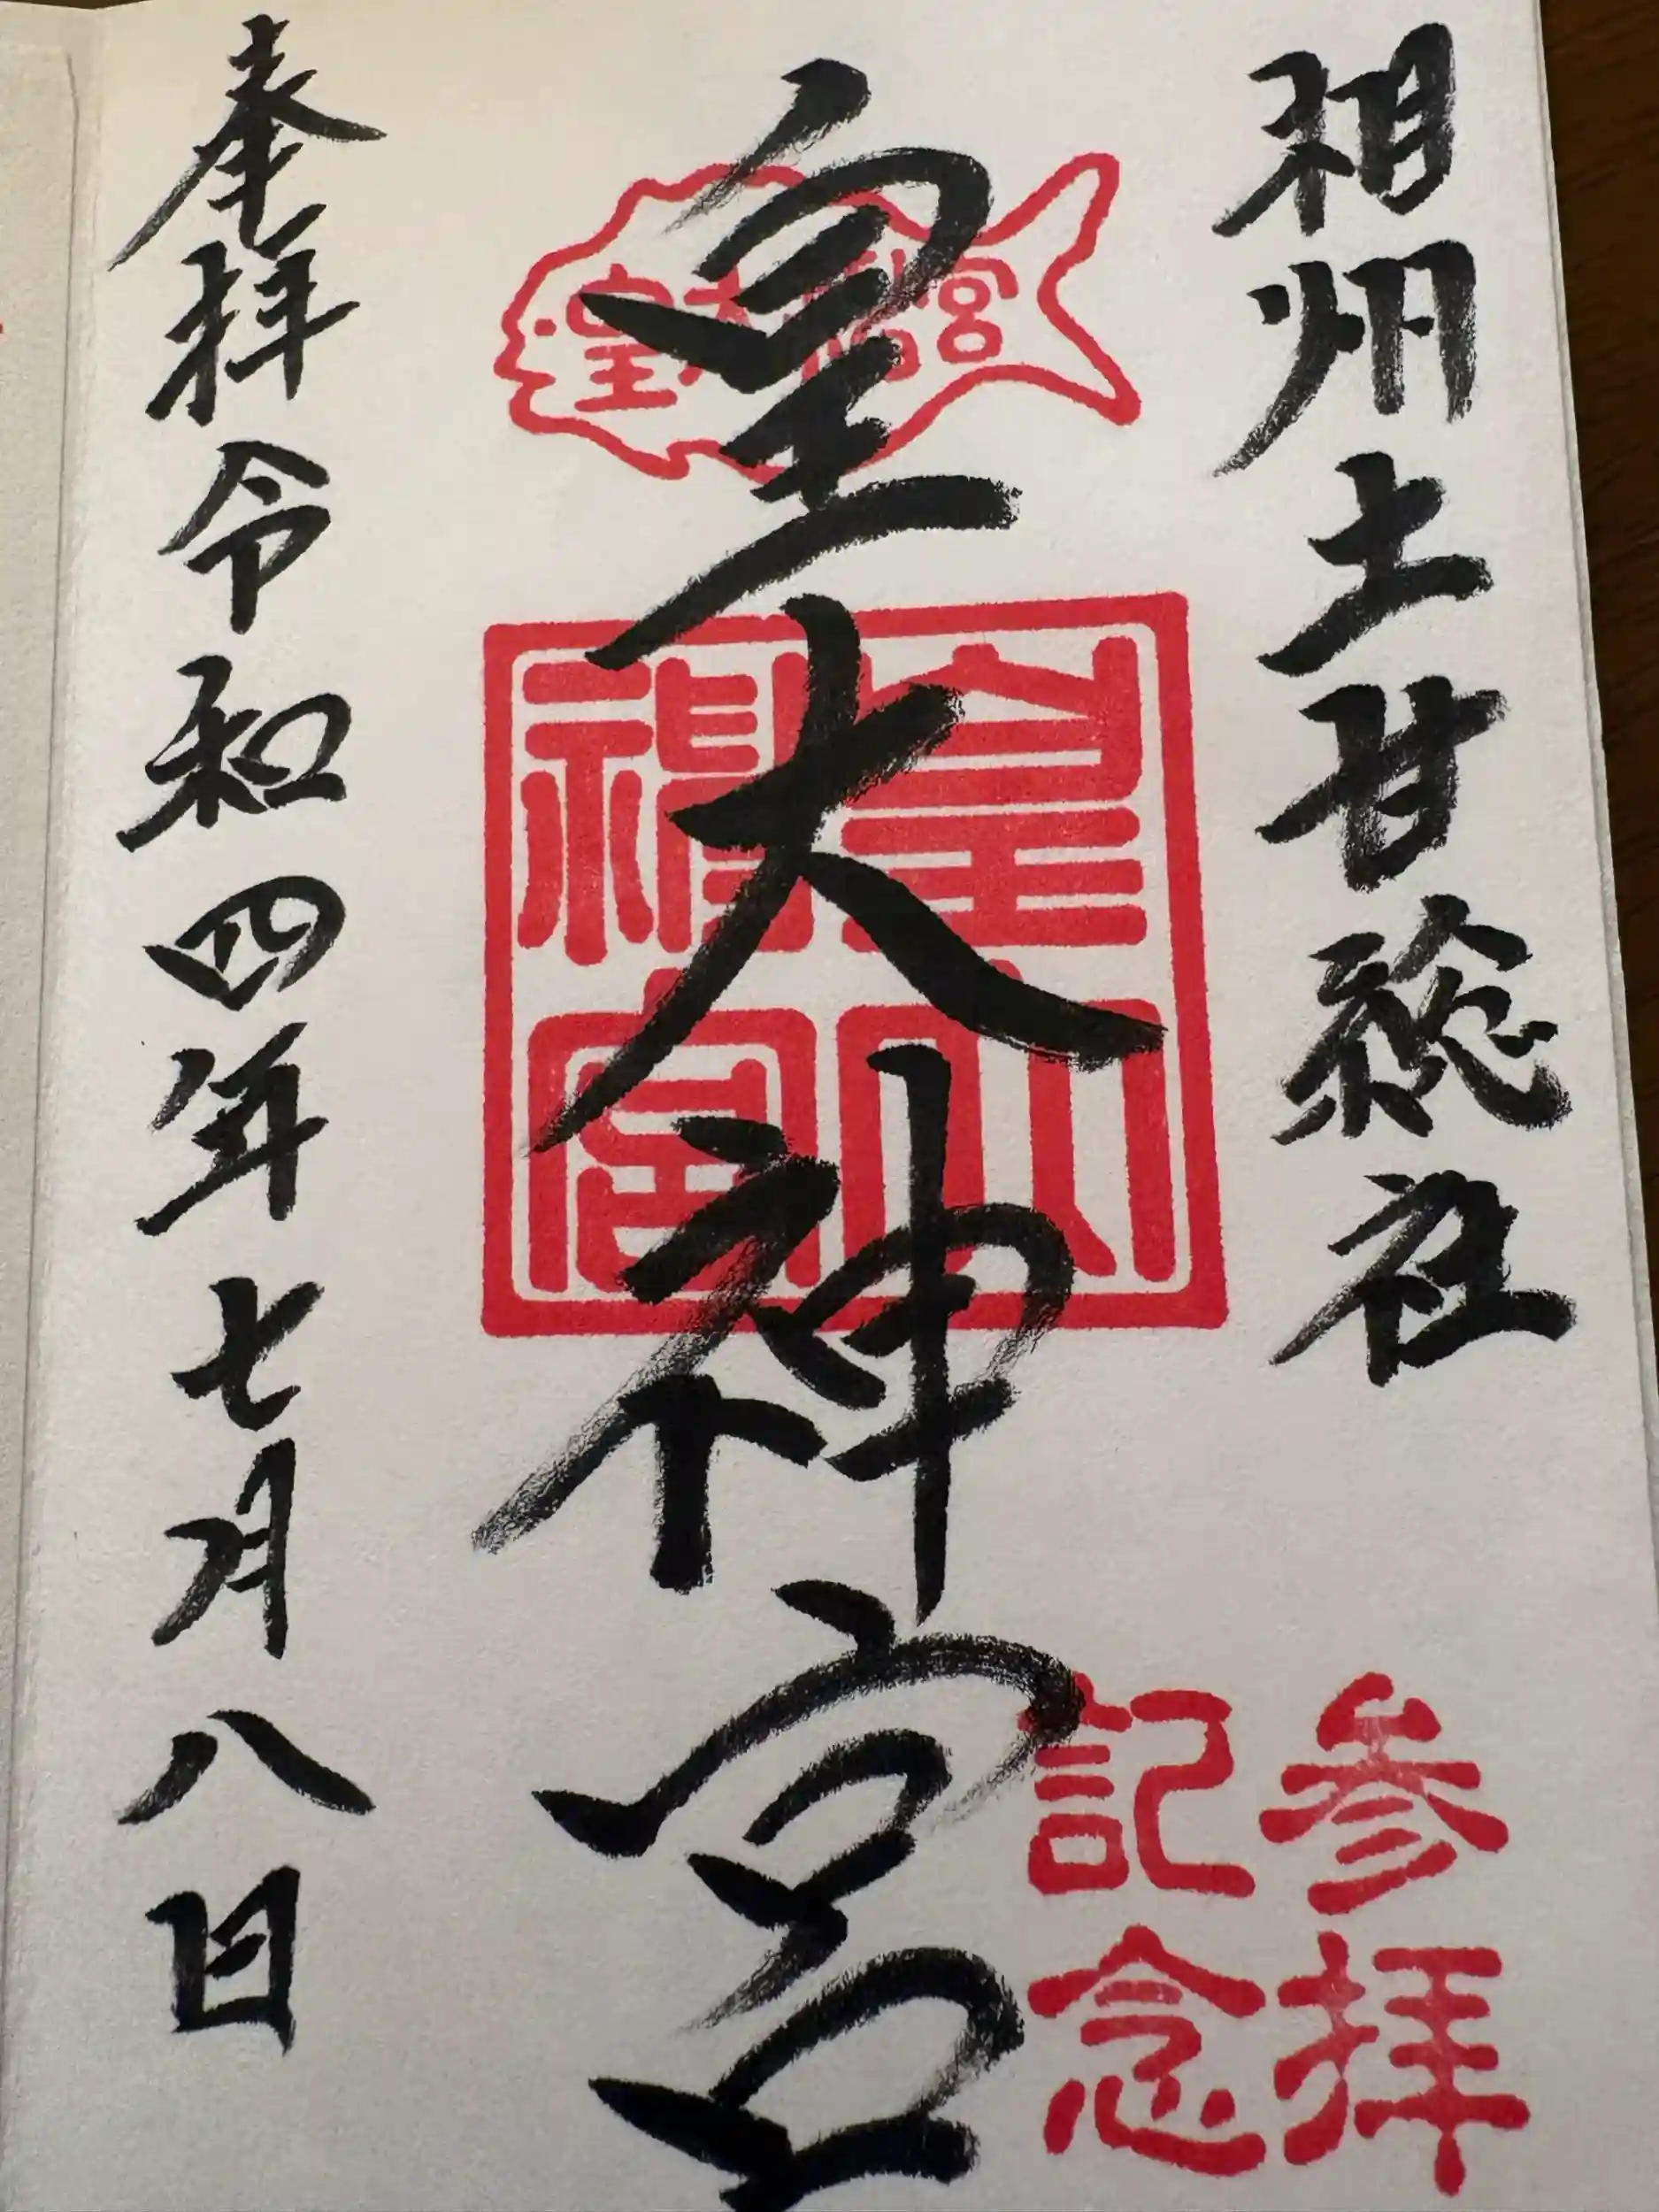 相州土甘総社
皇大神宮
皇大神宮
皇大神宮
参拝
記念
奉拝令和四年七月八日